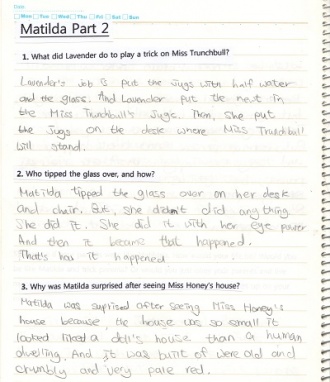 Date
Mon Tue Wed Thu Fri Sat Sun
Matilda Part 2
1. What did Lavender do to play a trick on Miss Trunchbull?
Lavender's job is put the jugs with half water
and the glass. And Lavender put the newt in
the Miss Trunchbull's jugs. Then, she put
the jugs on the desk where Miss Trunchbull
will stand.
2. Who tipped the glass over, and how?
Matilda tipped the glass over on her desk
and chair. But, she didn't did anything
She did it. She did it with her eye power
And then it became that happened.
That's has it happened
3. Why was Matilda surprised after seeing Miss Honey's house?
Matilda was suprised after seeing Miss Honey's
house because, the house was so small it
looked liked a doll's house than a human
dwelling, And it was built of were old and
crumbly and very pale red.